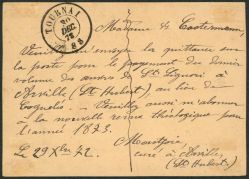 TOURNAI
30
DEC.
72
8 S
Madame Vve Casterman,
Veuillez envoyer la quittance sur
la poste pour le payement du dernier
volume des œuvres de St Liguori à
Arville (St Hubert), au lieu de
Cognelée. — Veuillez aussi m'abonner
à la nouvelle revue théologique pour
l'année 1873.
Le 29 Xbre 72.
curé à Arville
(St Hubert)